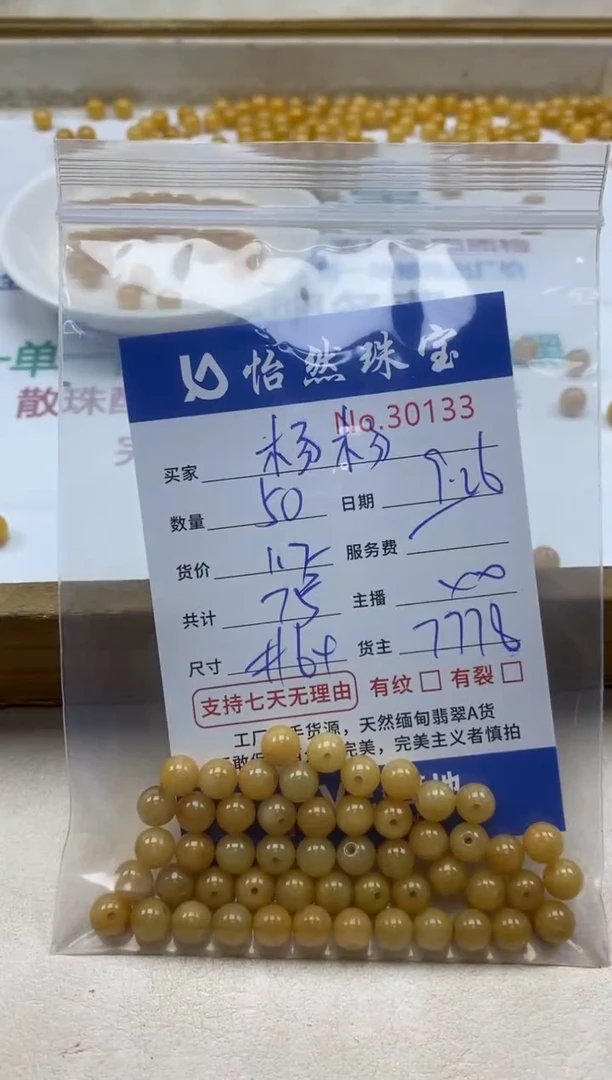 怡然珠宝
No.30133
买家 杨杨
数量 50 日期 9.26
货价 服务费
共计 75 主播
尺寸 #6+ 货主 7778
支持七天无理由 有纹 有裂
工厂 手货源，天然缅甸翡翠A货
完美，完美主义者慎拍
地
一单一
散珠